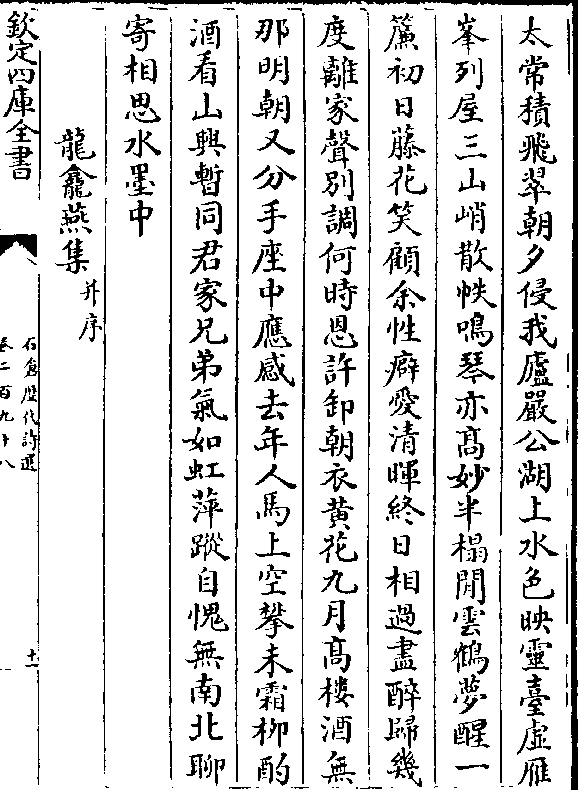 太常積飛翠朝夕侵我廬嚴公湖上水色映靈臺虛雁
峯列屋三山峭散帙鳴琴亦髙妙半榻閒雲鶴夢醒一
簾初日藤花笑顧余性癖愛清暉終日相過盡醉歸幾
度離家聲別調何時恩許卸朝衣黄花九月髙樓酒無
那明朝又分手座中應感去年人馬上空攀未霜柳酌
酒看山興暫同君家兄弟氣如虹萍蹤自愧無南北聊
寄相思水墨中
龍龕燕集并序
欽定四庫全書
石倉歴代詩選
卷二百九十八
十一